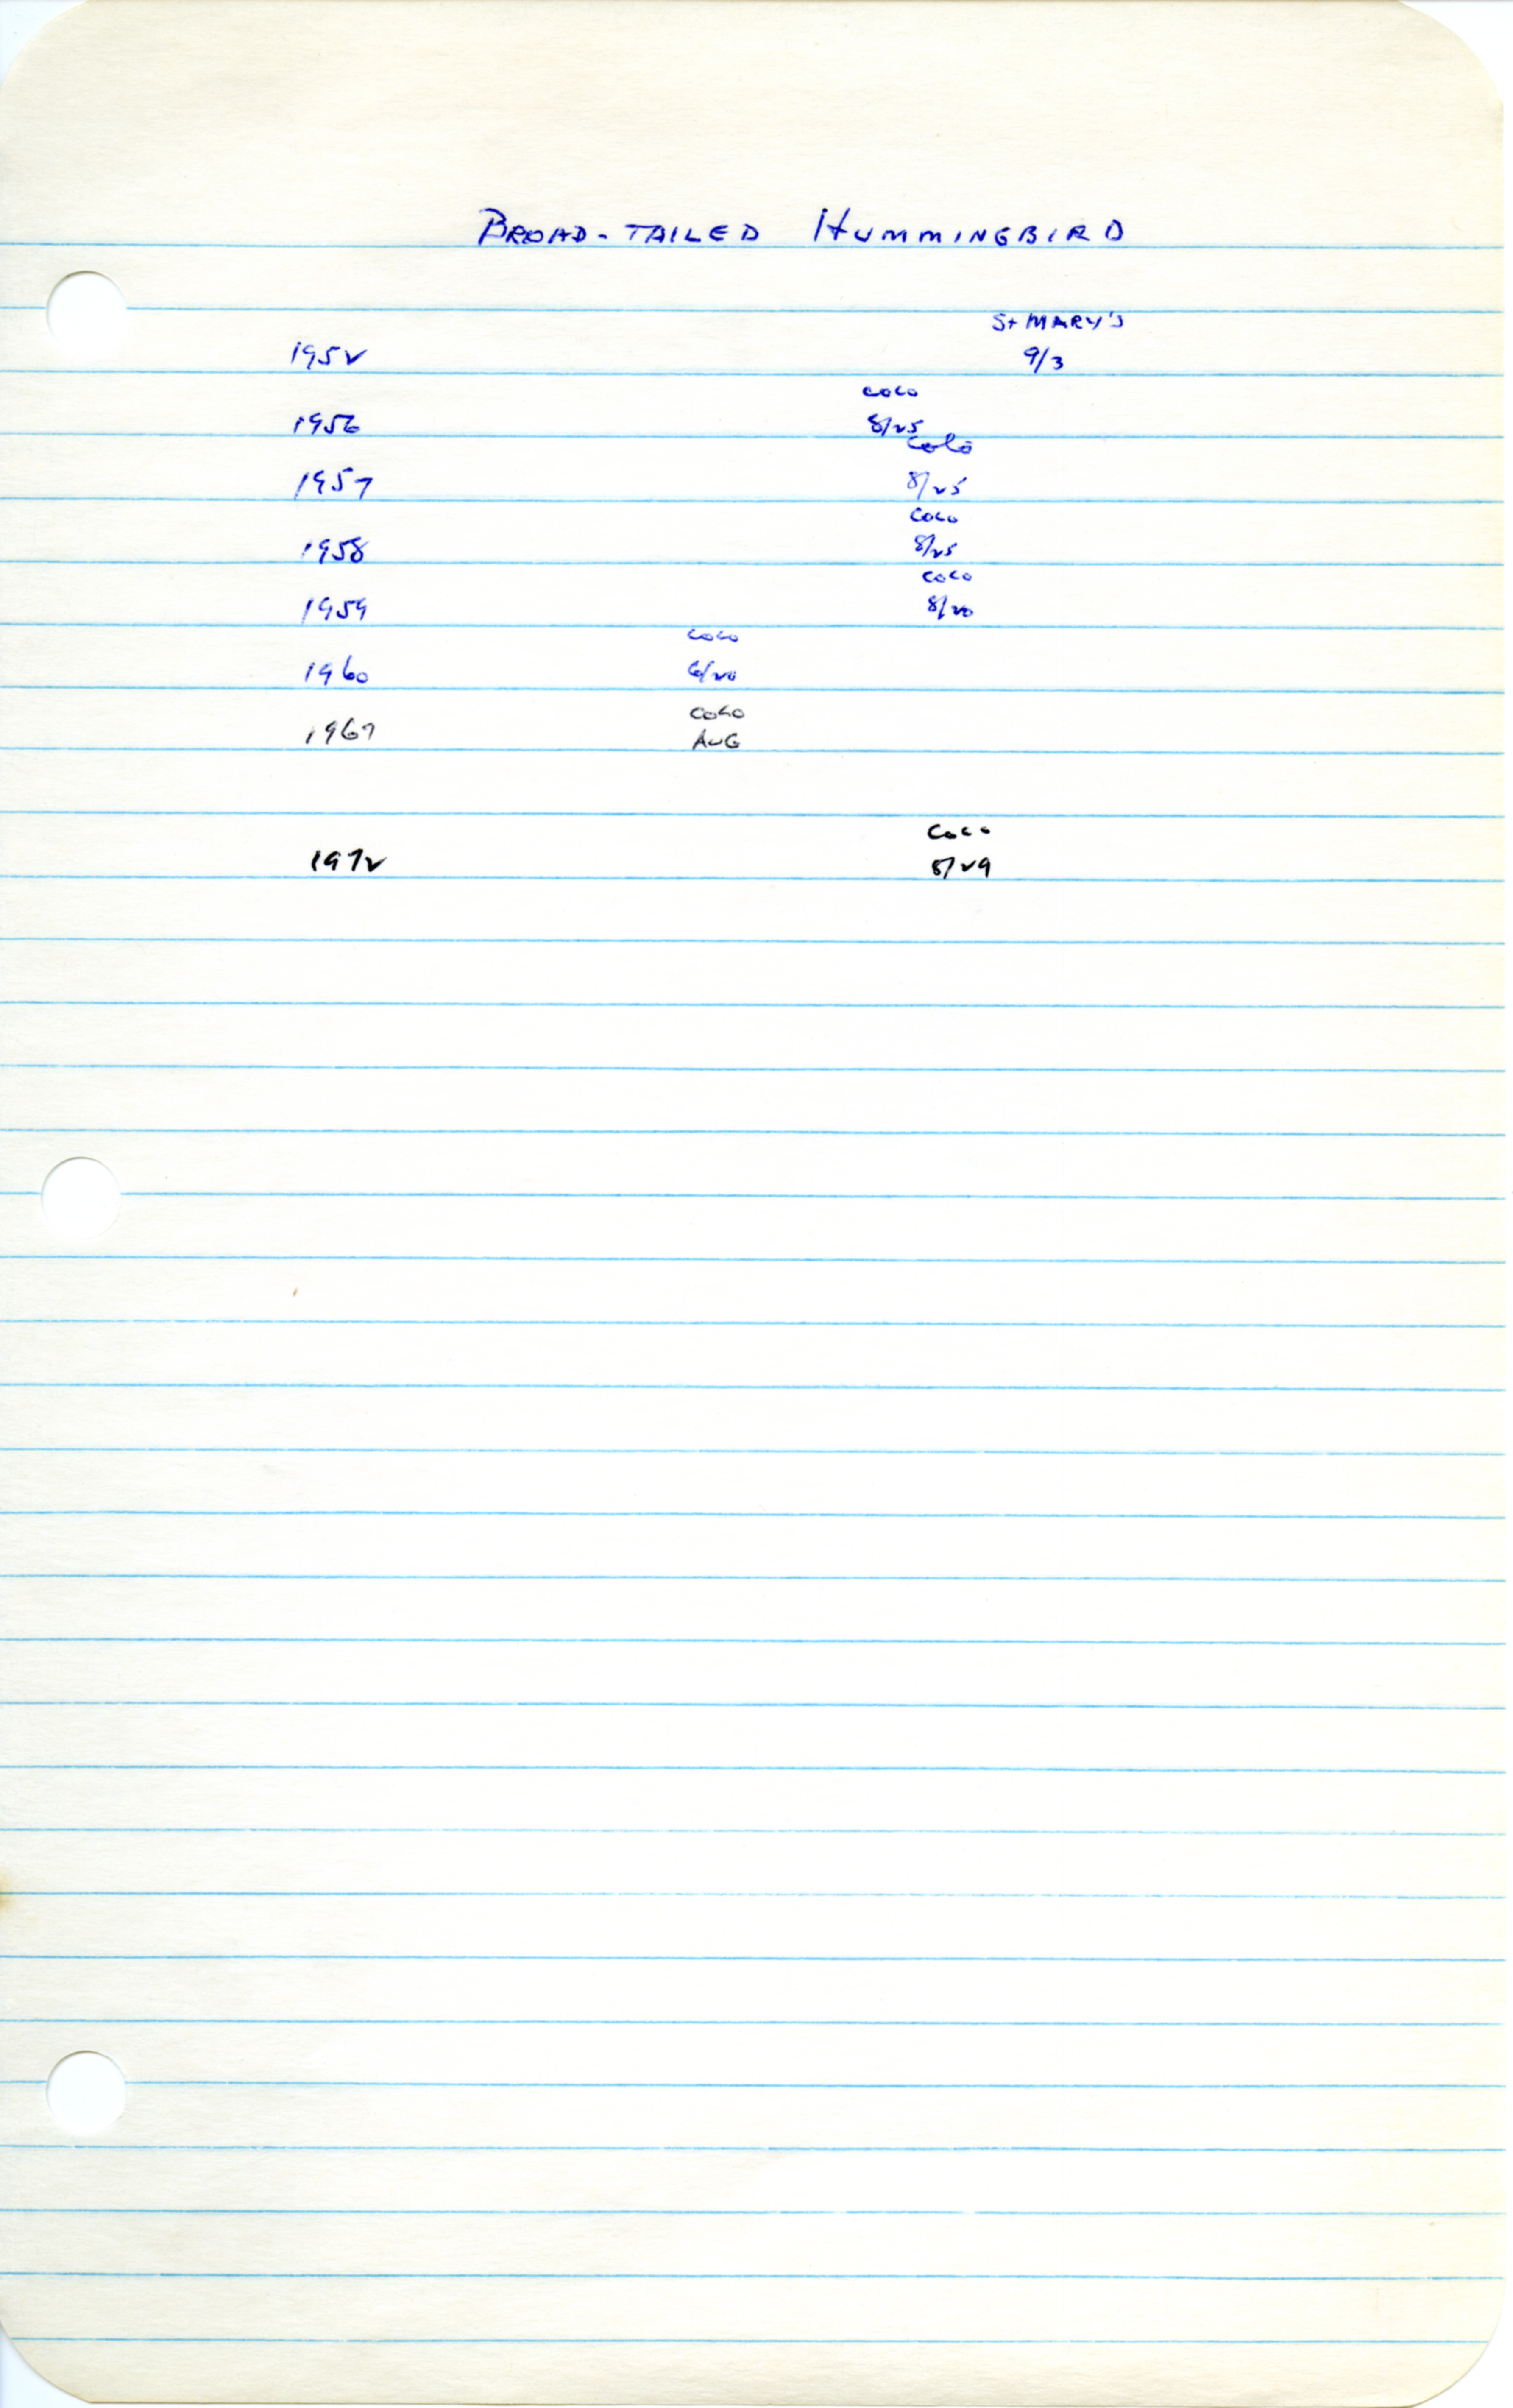 BROAD-TAILED HUMMINGBIRD
St MARY'S
1952 9/3
COLO
1956 8/25
COLO
1957 8/25
COLO
1958 8/25
COLO
1959 8/20
COLO
1960 6/20
COLO
1967 AUG
COLO
1972 8/29